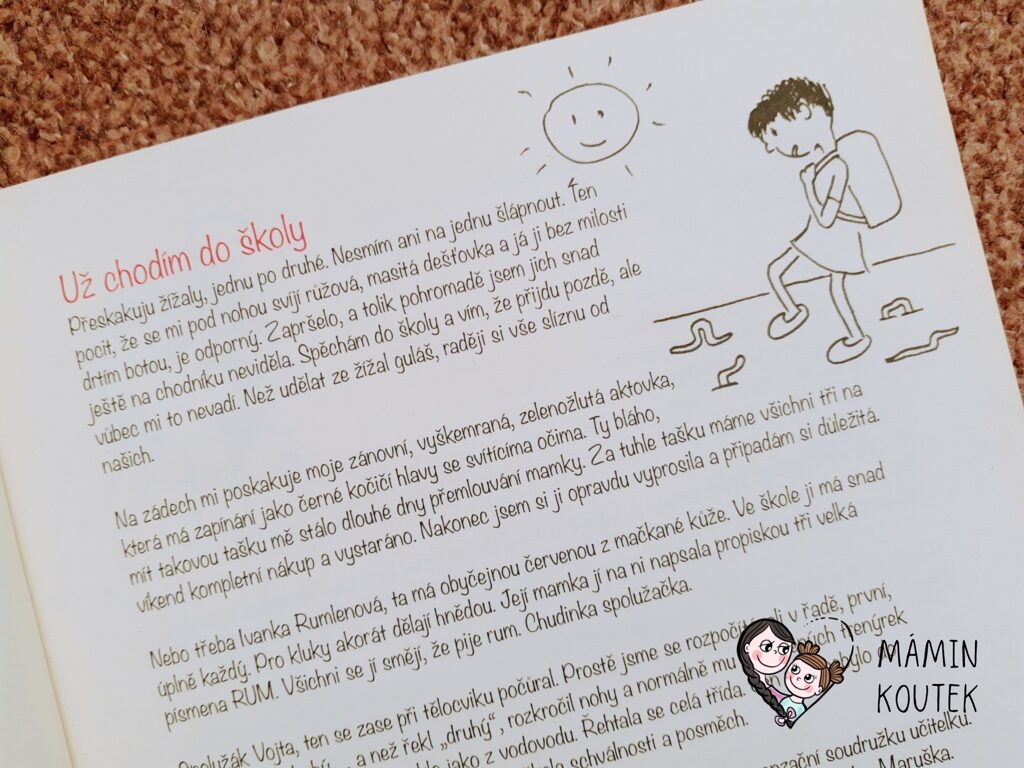 Už chodím do školy
Přeskakuju žížaly, jednu po druhé. Nesmím ani na jednu šlápnout. Ten
pocit, že se mi pod nohou svíjí růžová, masitá dešťovka a já ji bez milosti
drtím botou, je odporný. Zapršelo, a tolik pohromadě jsem jich snad
ještě na chodníku neviděla. Spěchám do školy a vím, že přijdu pozdě, ale
vůbec mi to nevadí. Než udělat ze žížal guláš, raději si vše slíznu od
našich.
Na zádech mi poskakuje moje zánovní, vyškemraná, zelenožlutá aktovka,
která má zapínání jako černé kočičí hlavy se svítícíma očima. Ty bláho,
mít takovou tašku mě stálo dlouhé dny přemlouvání mamky. Za tuhle tašku máme všichni tři na
víkend kompletní nákup a vystaráno. Nakonec jsem si ji opravdu vyprosila a připadám si důležitá.
Nebo třeba Ivanka Rumlenová, ta má obyčejnou červenou z mačkané kůže. Ve škole ji má snad
úplně každý. Pro kluky akorát dělají hnědou. Její mamka jí na ni napsala propiskou tři velká
písmena RUM. Všichni se jí smějí, že pije rum. Chudinka spolužačka.
Vojta, ten se zase při tělocviku počůral. Prostě jsme se v řadě, první,
a než řekl „druhý“, rozkročil nohy a normálně mu trenýrek
jako z vodovodu. Řehtala se celá třída.
schválnosti a posměch.
soudružku učitelku.
Maruška.
MÁMIN
KOUTEK